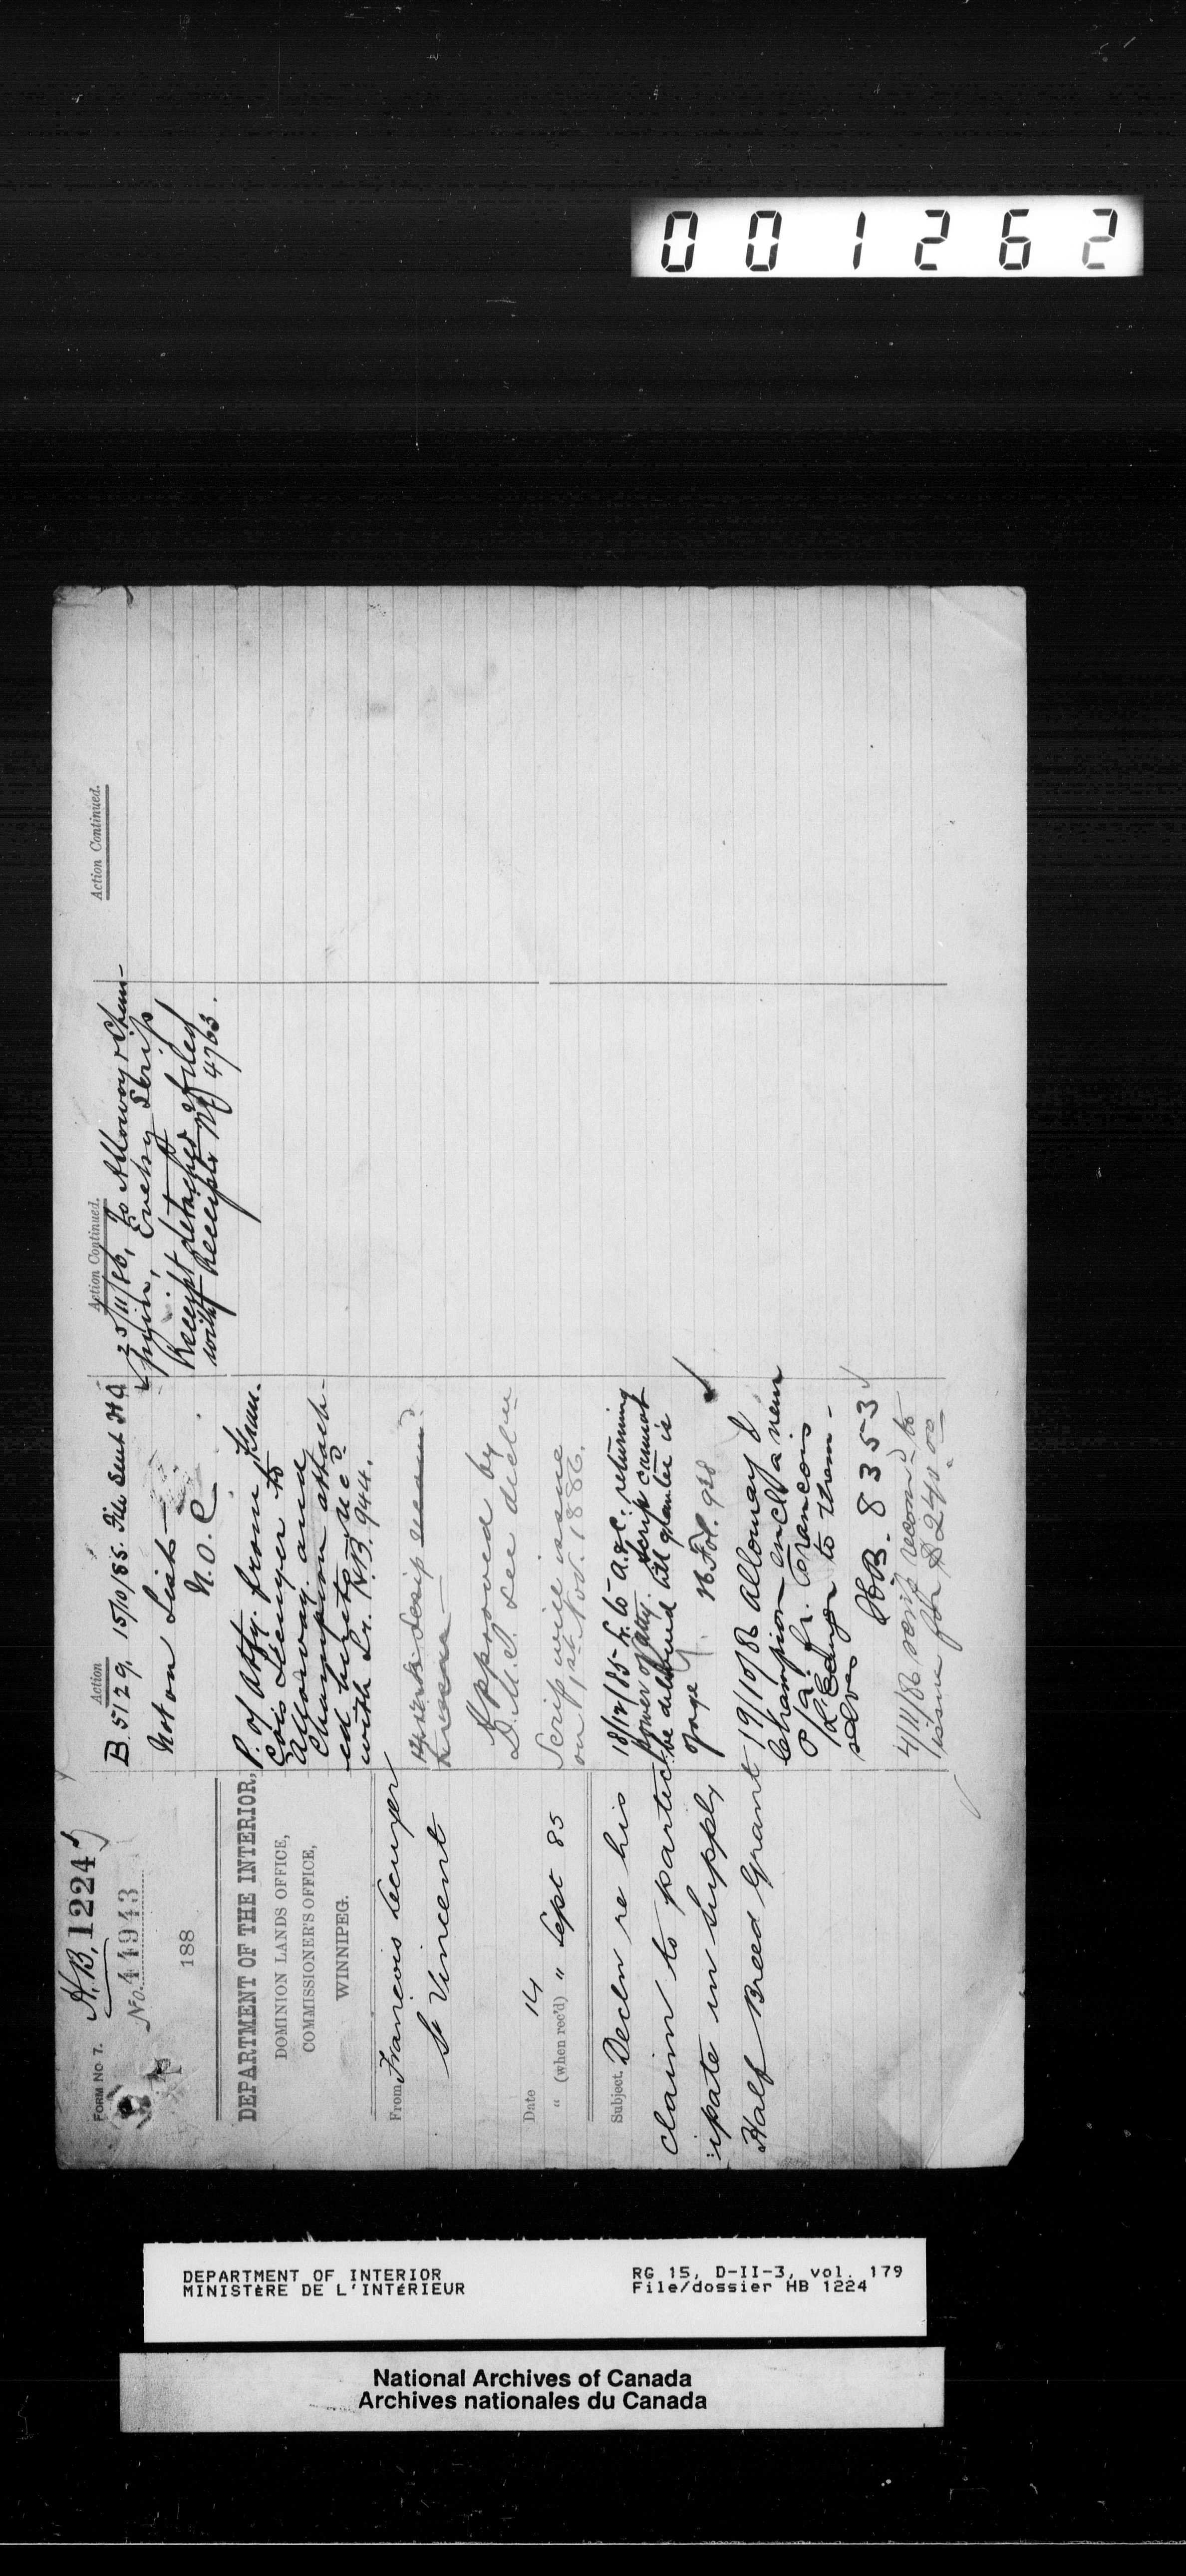 001262
FORM NO 7.
H.B. 1224
No. 44943
188
DEPARTMENT OF THE INTERIOR,
DOMINION LANDS OFFICE,
COMMISSIONER'S OFFICE,
WINNIPEG.
From Francois Lecuyer
St Vincent
Date 14
" (when rec'd) " Sept 85
Subject. Decln re his
claim to partic-
ipate in supply
Half Breed Grant
Action
B 5129, 15/10/85. File sent H O
Not on List
N.O.C
P. of Atty. from Fran-
cois Lecuyer to
Alloway and
Champion attach-
ed hereto
with Lr. H.B. 944.
scrip
Approved by
D.M.I. See decln
Scrip will issue
on 1st Nov. 1886.
18/12/85 - L. to A. & C. returning
power of atty. Scrip cannot
be delivered till grantee is
of age
Fol. 928
19/10/86 Alloway &
Champion encl a new
P/a. fr. Francois
to them-
selves
HB. 8353
4/11/86, scrip recomd to
issue for $240.00
Action Continued.
25/11/86, To Alloway & Cham-
pion, Scrip
Receipt detached & filed
with Receipts No 4763.
Action Continued.
DEPARTMENT OF INTERIOR
MINISTÈRE DE L'INTÉRIEUR
RG 15, D-II-3, vol. 179
File/dossier HB 1224
National Archives of Canada
Archives nationales du Canada